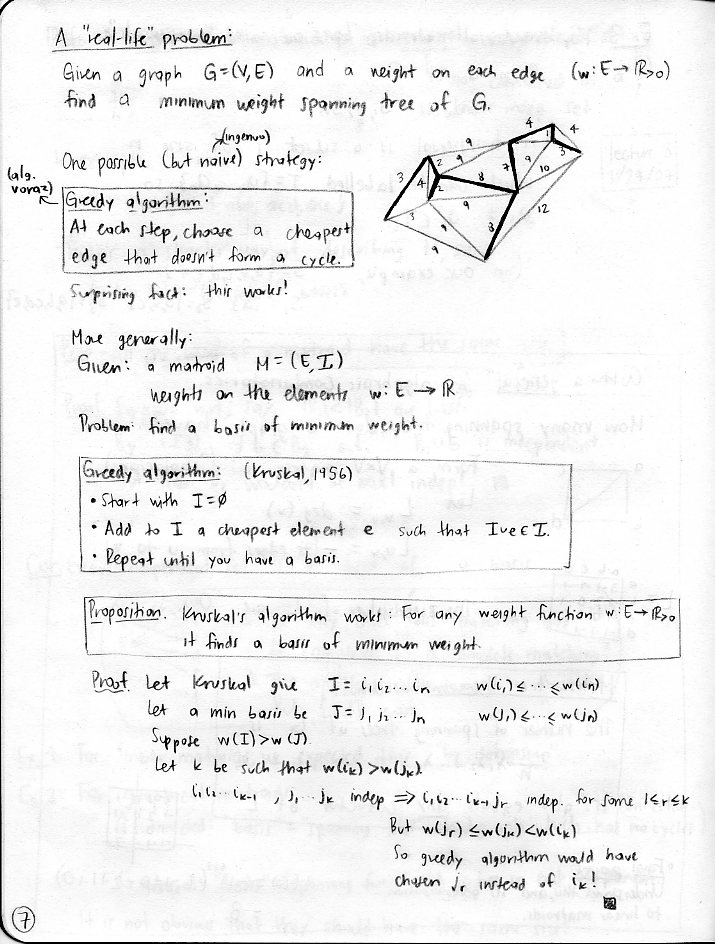 A "real-life" problem:
Given a graph G=(V,E) and a weight on each edge (w:E→ℝ>0)
find a minimum weight spanning tree of G.
(ingenuo)
One possible (but naive) strategy:
(alg. voraz)
Greedy algorithm:
At each step, choose a cheapest
edge that doesn't form a cycle.
4
4
9
1
2
9
3
3
7
9
4
8
10
2
9
3
12
9
8
9
Surprising fact: this works!
More generally:
Given: a matroid M=(E,I)
weights on the elements w:E→ℝ
Problem: find a basis of minimum weight.
Greedy algorithm: (Kruskal, 1956)
• Start with I=∅
• Add to I a cheapest element e such that I∪e∈I.
• Repeat until you have a basis.
Proposition. Kruskal's algorithm works: For any weight function w:E→ℝ>0
it finds a basis of minimum weight.
Proof Let Kruskal give I=i₁i₂...iₙ w(i₁)≤...≤w(iₙ)
Let a min basis be J=j₁j₂...jₙ w(j₁)≤...≤w(jₙ)
Suppose w(I)>w(J)
Let k be such that w(iₖ)>w(jₖ).
i₁i₂...iₖ₋₁, j₁...jₖ indep ⟹ i₁i₂...iₖ₋₁jᵣ indep. for some 1≤r≤k
But w(jᵣ)≤w(jₖ)<w(iₖ)
So greedy algorithm would have
chosen jᵣ instead of iₖ!
7